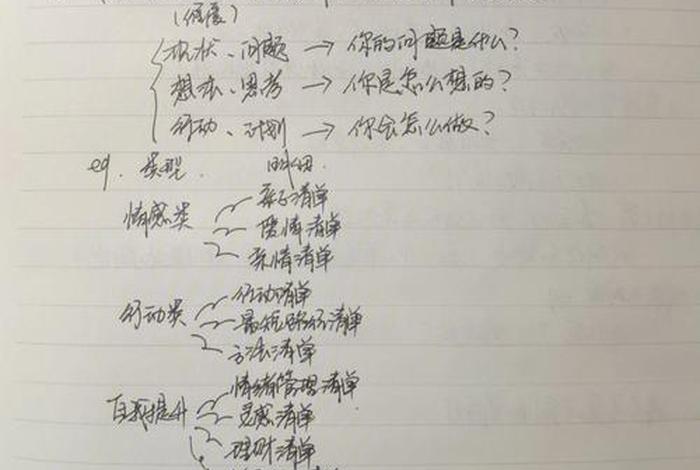 (维度)
现状、问题 → 你的问题是什么?
想法、思考 → 你是怎么想的?
行动、计划 → 你会怎么做?
eg. 类型.
情感类
亲子清单
爱情清单
亲情清单
行动类
行动清单
最短路径清单
方法清单
自我提升
情绪管理清单
灵感清单
理财清单